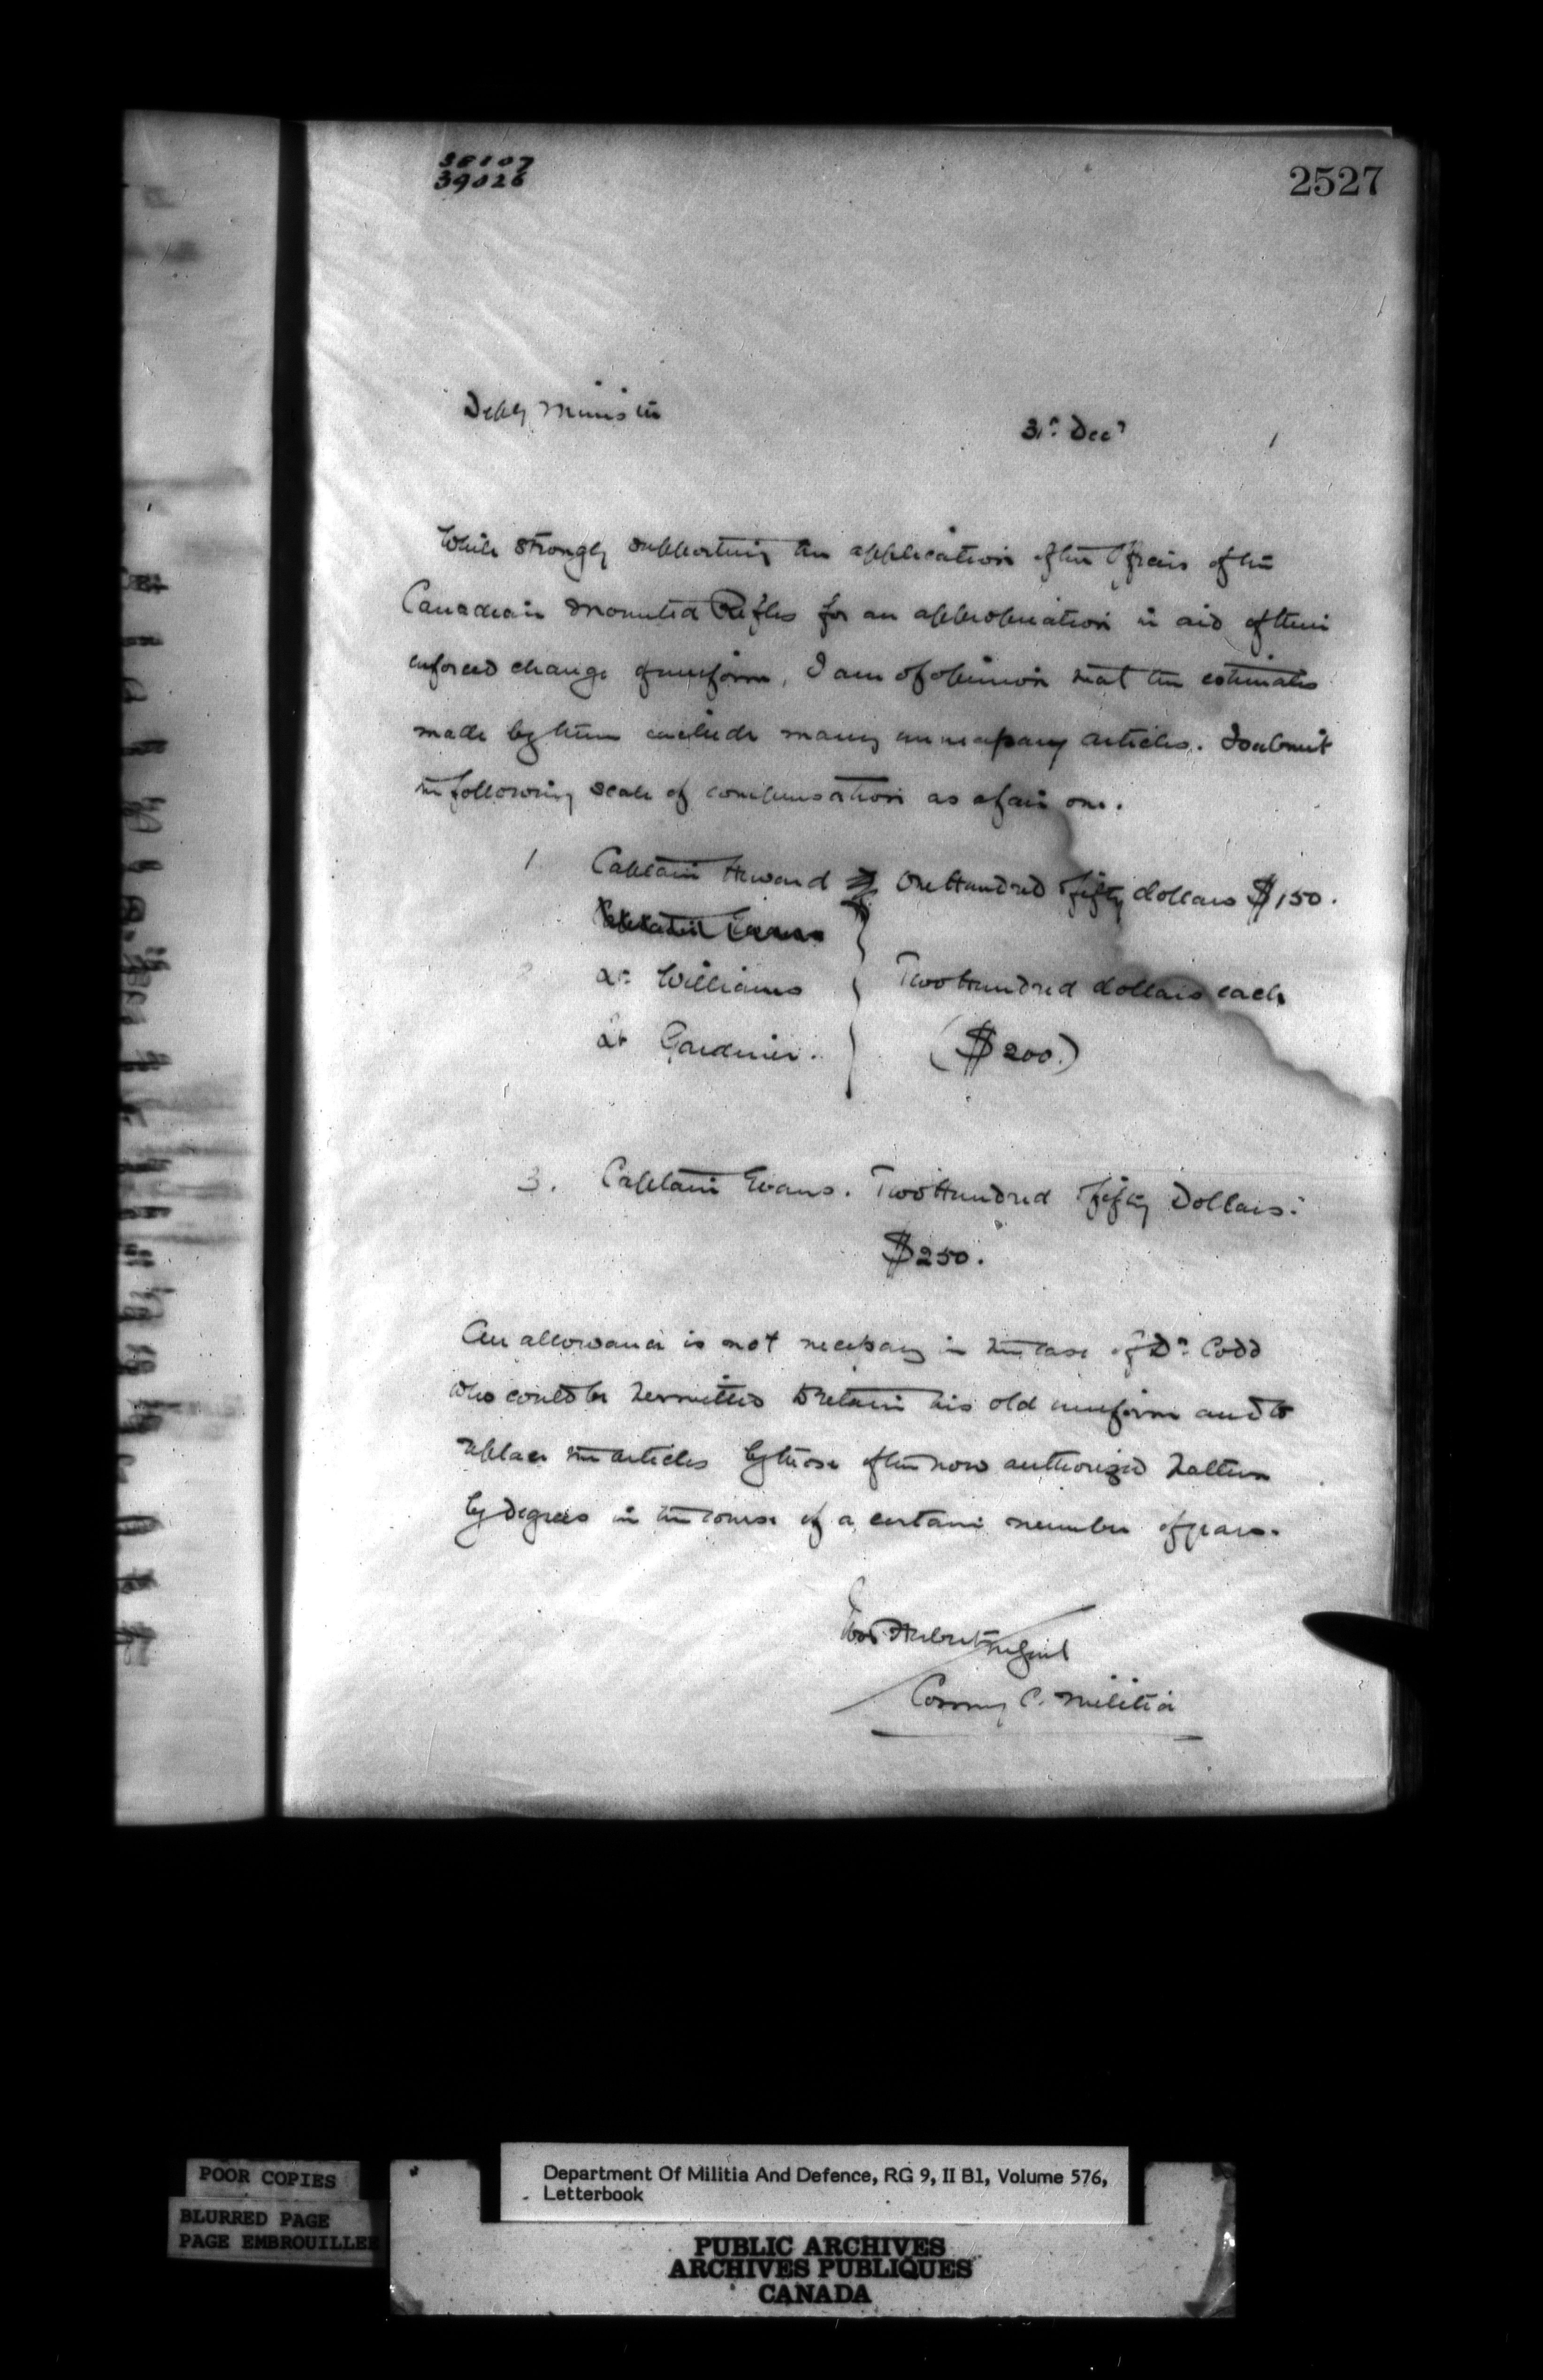 38107
39026
2527
Depy Minister
31st Decr
While strongly supporting the application of the Officers of the
Canadian Mounted Rifles for an appropriation in aid of their
enforced change of uniform, I am of opinion that the estimates
made by them include many unnecessary articles. I submit
the following scale of compensation as a fair one.
1 Captain Heward One Hundred & fifty dollars $150.
2 Lt. Williams Two Hundred dollars each
Lt Gardiner. ($200.)
3. Captain Evans. Two Hundred & fifty Dollars.
$250.
An allowance is not necessary in the case of Dr. Codd
who could be permitted to retain his old uniform and to
replace the articles by those of the now authorized pattern
by degrees in the course of a certain number of years.
Ivor Herbert M Genl
Commg C. Militia
POOR COPIES
BLURRED PAGE
PAGE EMBROUILLEE
Department Of Militia And Defence, RG 9, II B1, Volume 576,
Letterbook
PUBLIC ARCHIVES
ARCHIVES PUBLIQUES
CANADA